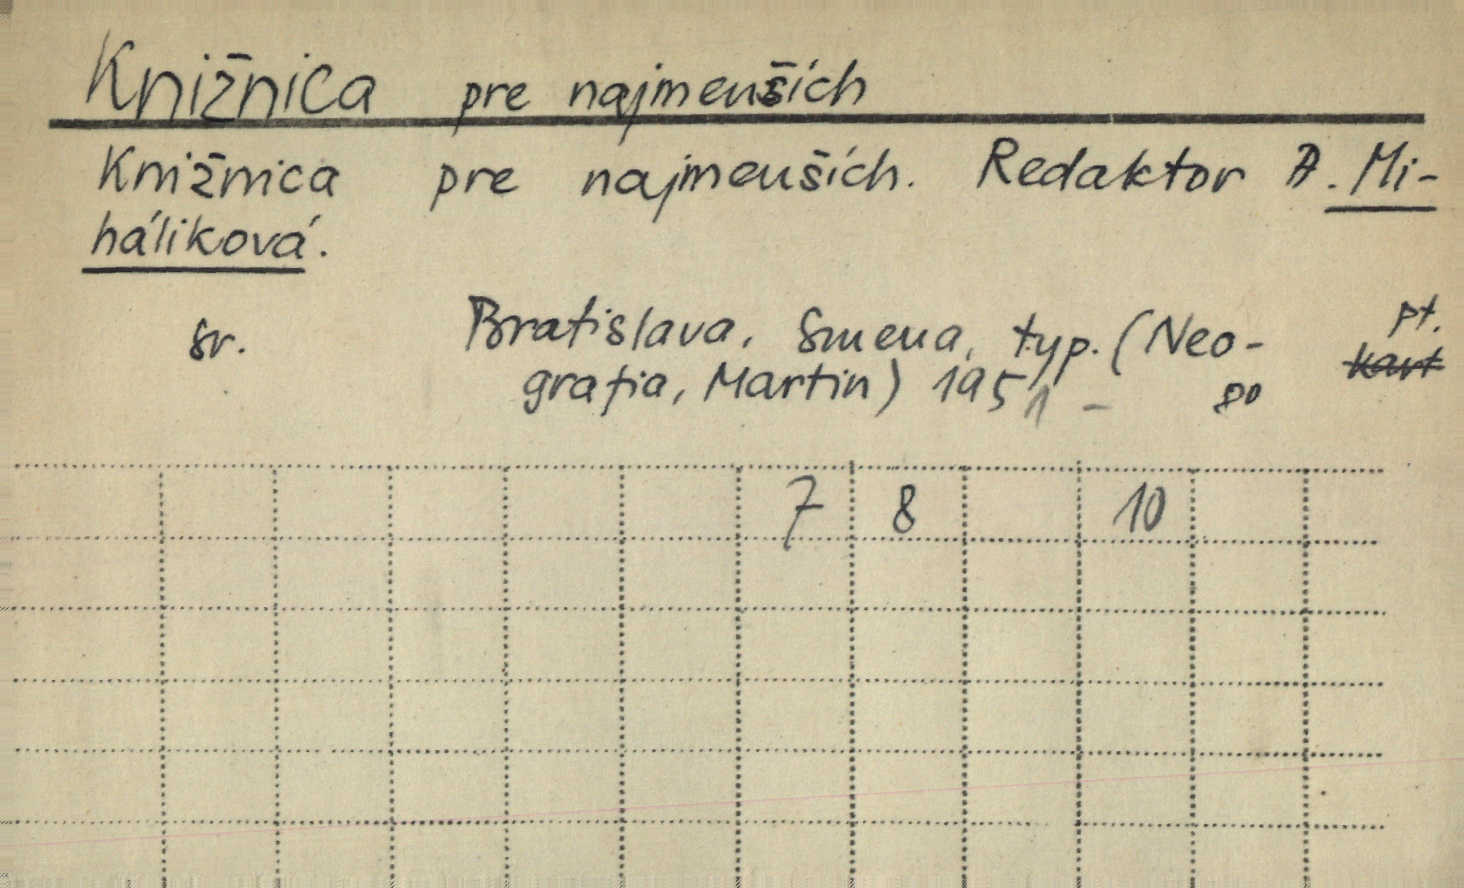 Knižnica pre najmenších
Knižnica pre najmenších. Redaktor A. Mi-
háliková.
sv. Bratislava, Smena, typ. (Neo- pt.
grafia, Martin) 1951 - 8° kart
7 8 10